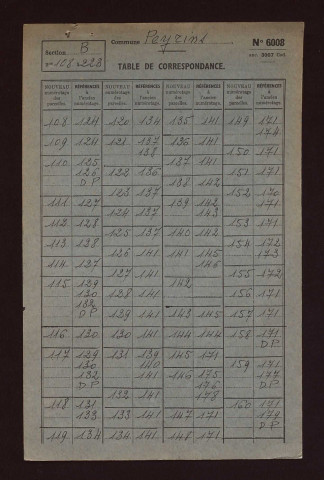 Section B
Commune Peyrins
N° 6008
n° 108 à 223
TABLE DE CORRESPONDANCE.
NOUVEAU numérotage des parcelles. RÉFÉRENCES à l'ancien numérotage. NOUVEAU numérotage des parcelles. RÉFÉRENCES à l'ancien numérotage. NOUVEAU numérotage des parcelles. RÉFÉRENCES à l'ancien numérotage. NOUVEAU numérotage des parcelles. RÉFÉRENCES à l'ancien numérotage.
108 124 120 134 135 141 149 171
174
109 124 121 137 136 141
138 150 171
110 125 137 141
126 122 136 151 171
D P 123 137 138 142
111 127 139 142 152 170
124 137 143 171
112 128 153 171
125 137 140 142
113 138 154 172
126 141 141 145 173
114 127 146
127 141 155 172
115 129 142
130 128 141 156 171
132
D P 129 141 143 145 157 171
116 130 130 141 144 144 158 171
D P
117 129 131 139 145 171
130 140 159 171
132 146 175 177
D P 176 D P
132 141 178
118 131 160 171
133 133 141 147 171 179
D P
119 134 134 141 148 171